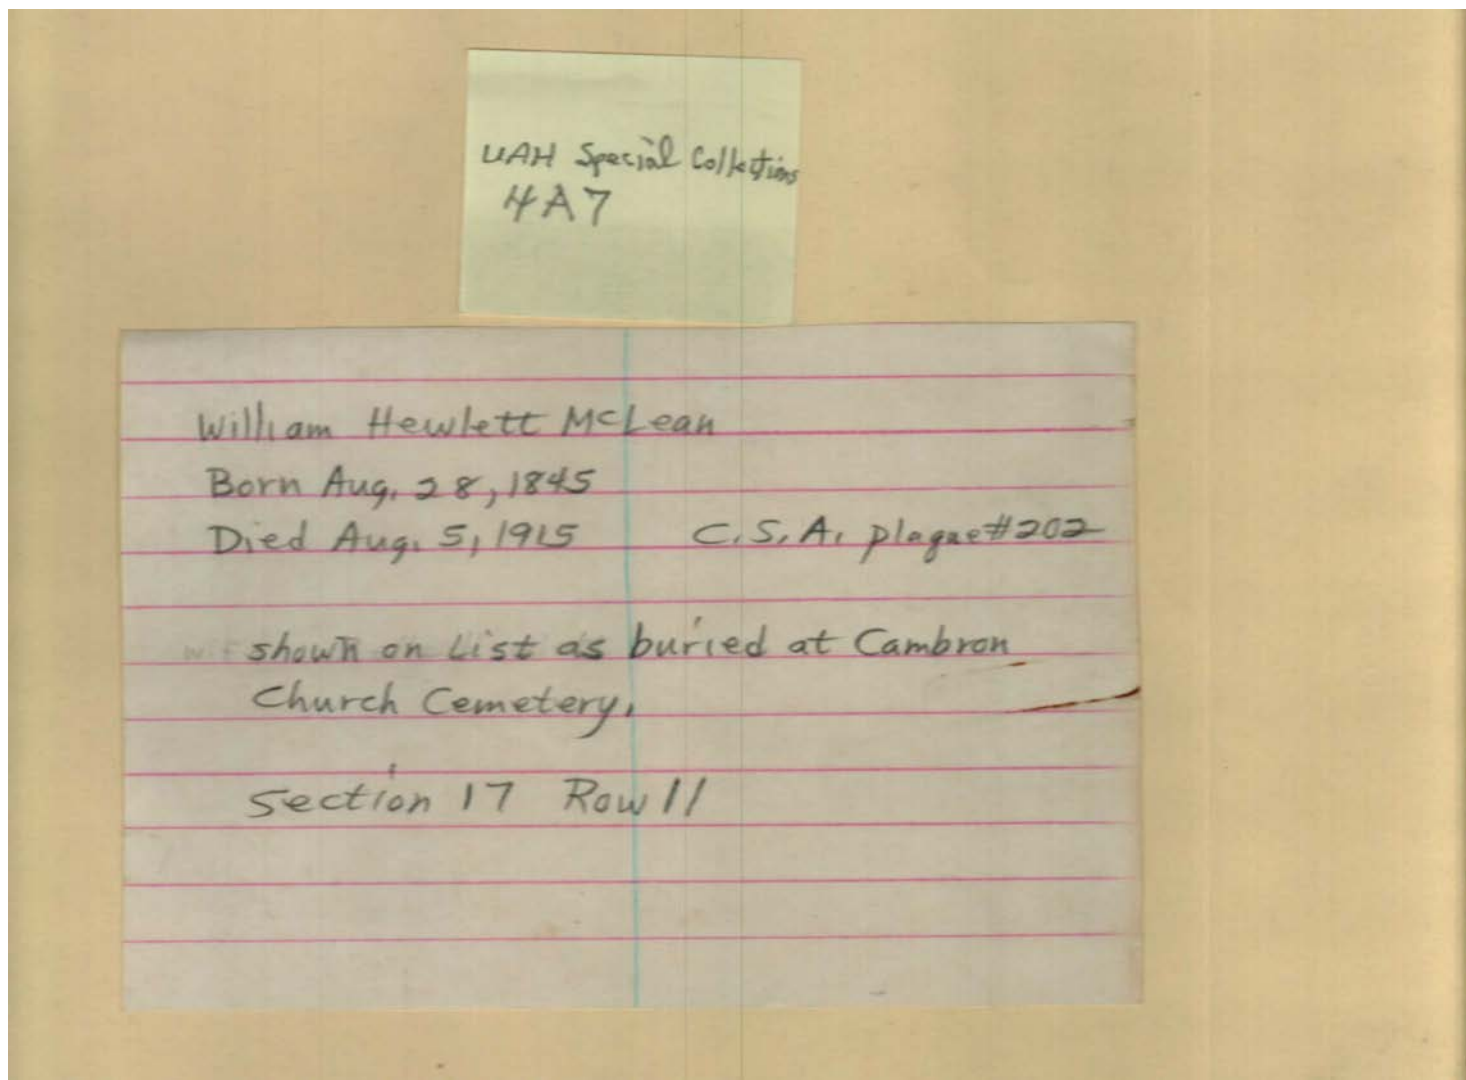 UAH Special Collections
4A7
William Hewlett McLean
Born Aug. 28, 1845
Died Aug. 5, 1915 C.S.A. plaque #202
shown on List as buried at Cambron
Church Cemetery.
Section 17 Row 11